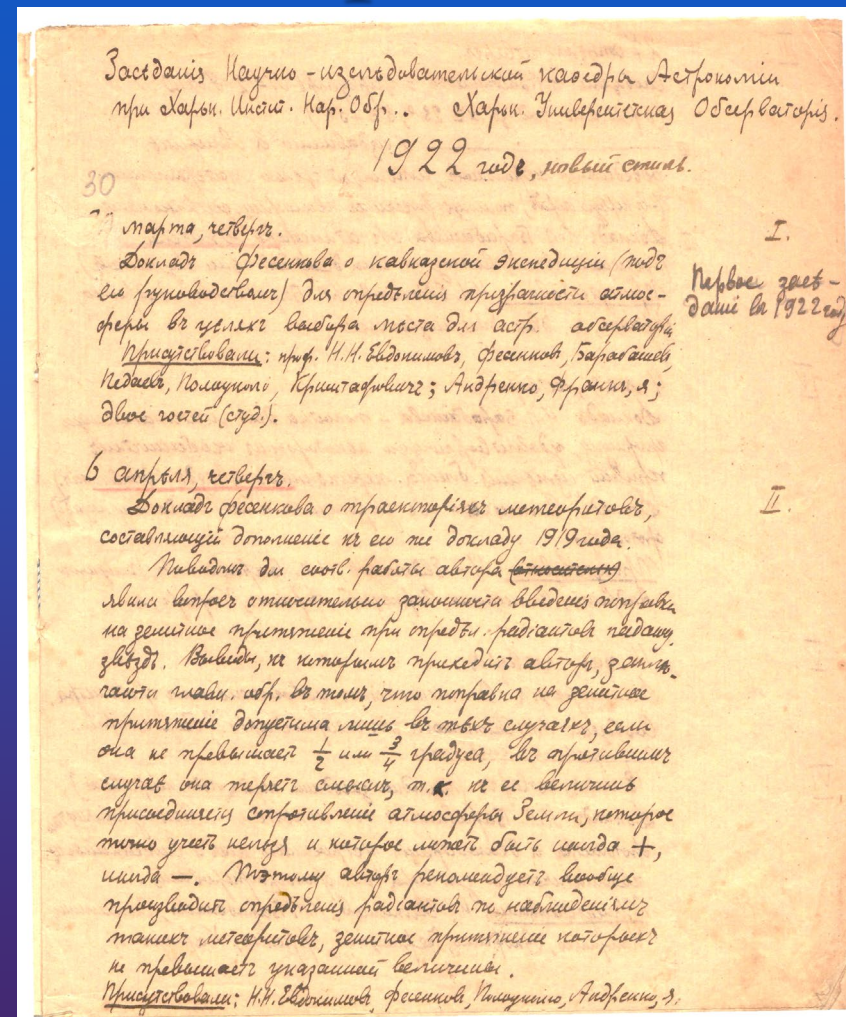 Засѣданія Научно-изслѣдовательской каѳедры Астрономіи
при Харьк. Инстит. Нар. Обр.. Харьк. Университетская Обсерваторія.
1922 годъ, новый стиль.
30
марта, четвергъ.
I.
Докладъ Фесенкова о кавказской экспедиціи (подъ
его руководствомъ) для опредѣленія прозрачности атмос-
феры въ цѣляхъ выбора мѣста для астр. обсерваторіи
Первое засѣ-
даніе въ 1922 году
Присутствовали: проф. Н.Н. Евдокимовъ, Фесенковъ, Барабашевъ,
Педаевъ, Полоцкого, Криштафовичъ; Андренко, Франкъ, я;
двое гостей (студ.).
6 апрѣля, четвергъ.
II.
Докладъ Фесенкова о траекторіяхъ метеоритовъ,
составляющій дополненіе къ его же докладу 1919 года.
Поводомъ для соотв. работы автора
явился вопросъ относительно законности введенія поправки
на зенитное притяженіе при опредѣл. радіантовъ падающ.
звѣздъ. Выводы, къ которымъ приходитъ авторъ, заклю-
чаются главн. обр. въ томъ, что поправка на зенитное
притяженіе допустима лишь въ тѣхъ случаяхъ, если
она не превышаетъ 1/2 или 3/4 градуса, въ противномъ
случаѣ она теряетъ смыслъ, т.к. къ ее величинѣ
присоединяется сопротивленіе атмосферы Земли, которое
точно учесть нельзя и которое можетъ быть иногда +,
иногда —. Поэтому авторъ рекомендуетъ вообще
производить опредѣленія радіантовъ по наблюденіямъ
такихъ метеоритовъ, зенитное притяженіе которыхъ
не превышаетъ указанной величины.
Присутствовали: Н.Н. Евдокимовъ, Фесенковъ, Андренко, я.